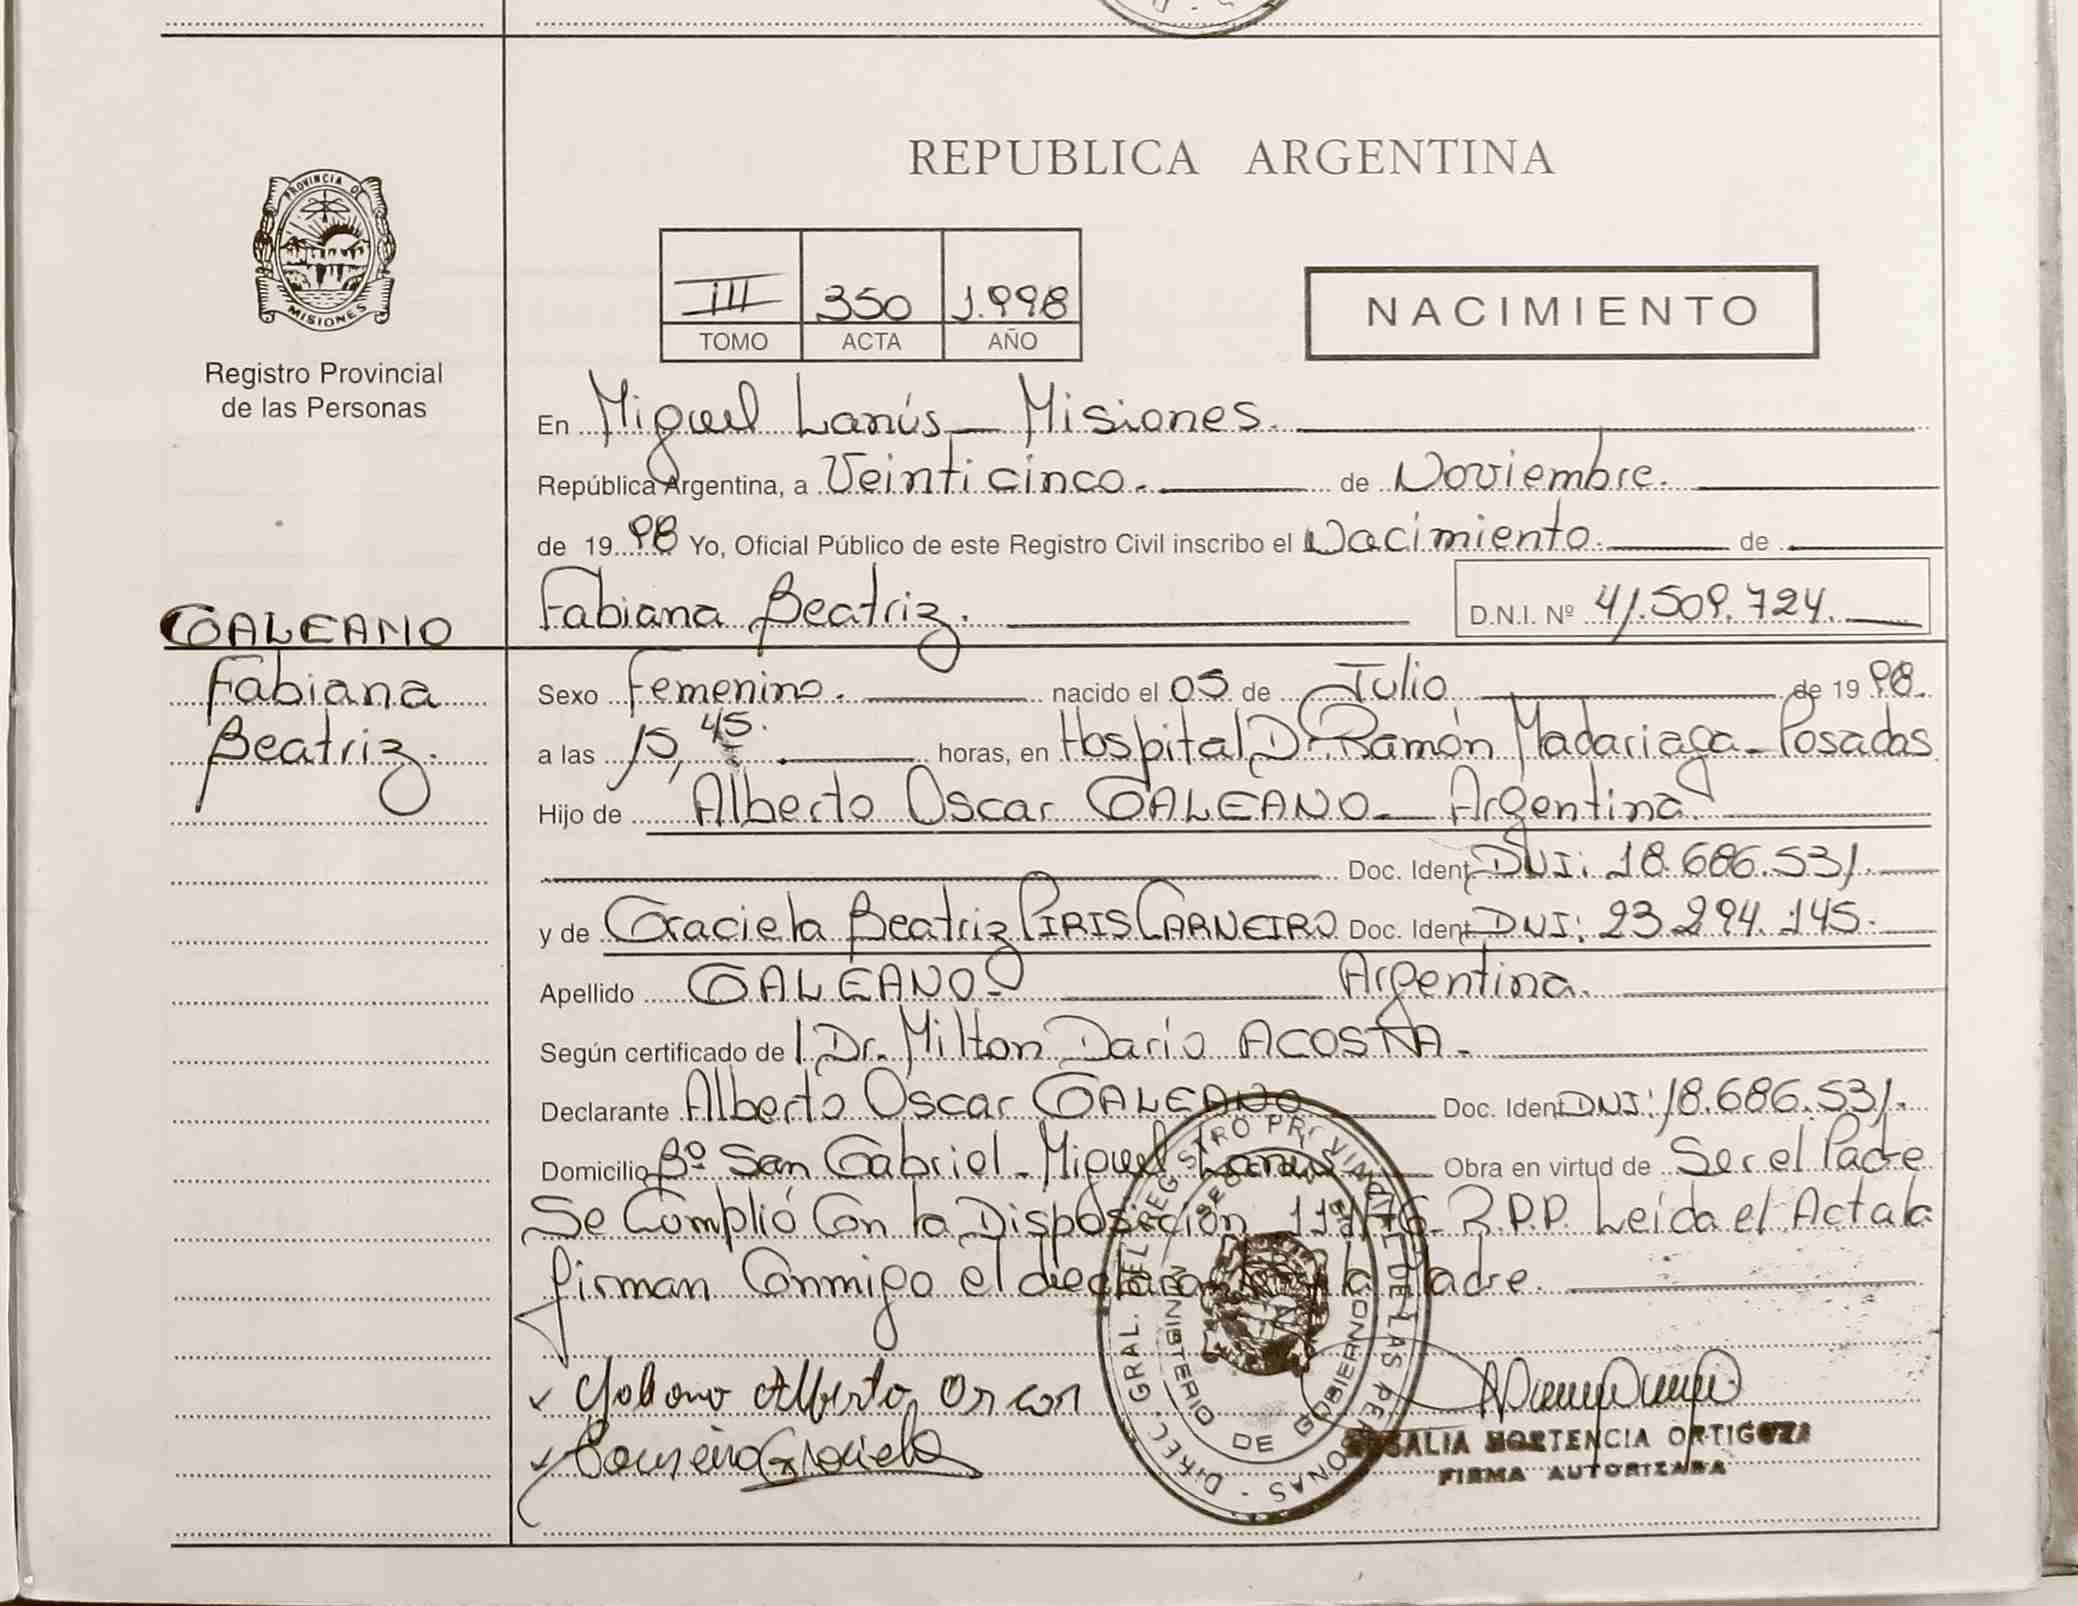 REPUBLICA ARGENTINA
PROVINCIA DE
MISIONES
Registro Provincial
de las Personas
III 350 1.998
TOMO ACTA AÑO
NACIMIENTO
En Miguel Lanús - Misiones.
República Argentina, a Veinticinco. de Noviembre.
de 1998 Yo, Oficial Público de este Registro Civil inscribo el Nacimiento. de
Fabiana Beatriz. D.N.I. Nº 41.509.724.
GALEANO
Fabiana
Beatriz.
Sexo Femenino. nacido el 05 de Julio de 1998.
a las 15,45. horas, en Hospital Dr. Ramón Madariaga - Posadas
Hijo de Alberto Oscar GALEANO - Argentina
Doc. Ident. DNI: 18.686.531.
y de Graciela Beatriz PIRIS CARNEIRO Doc. Ident. DNI: 23.294.145.
Apellido GALEANO - Argentina.
Según certificado de l Dr. Milton Darío ACOSTA.
Declarante Alberto Oscar GALEANO Doc. Ident. DNI: 18.686.531.
Domicilio Bº San Gabriel - Miguel Lanús Obra en virtud de Ser el Padre
Se Cumplió Con la Disposición R.P.P. Leída el Acta la
firman Conmigo el declarante y la Madre.
Galeano Alberto Oscar
Carneiro Graciela
DIREC. GRAL. DEL REGISTRO PROVINCIAL DE LAS PERSONAS
MINISTERIO DE GOBIERNO
ROSALIA HORTENCIA ORTIGOZA
FIRMA AUTORIZADA